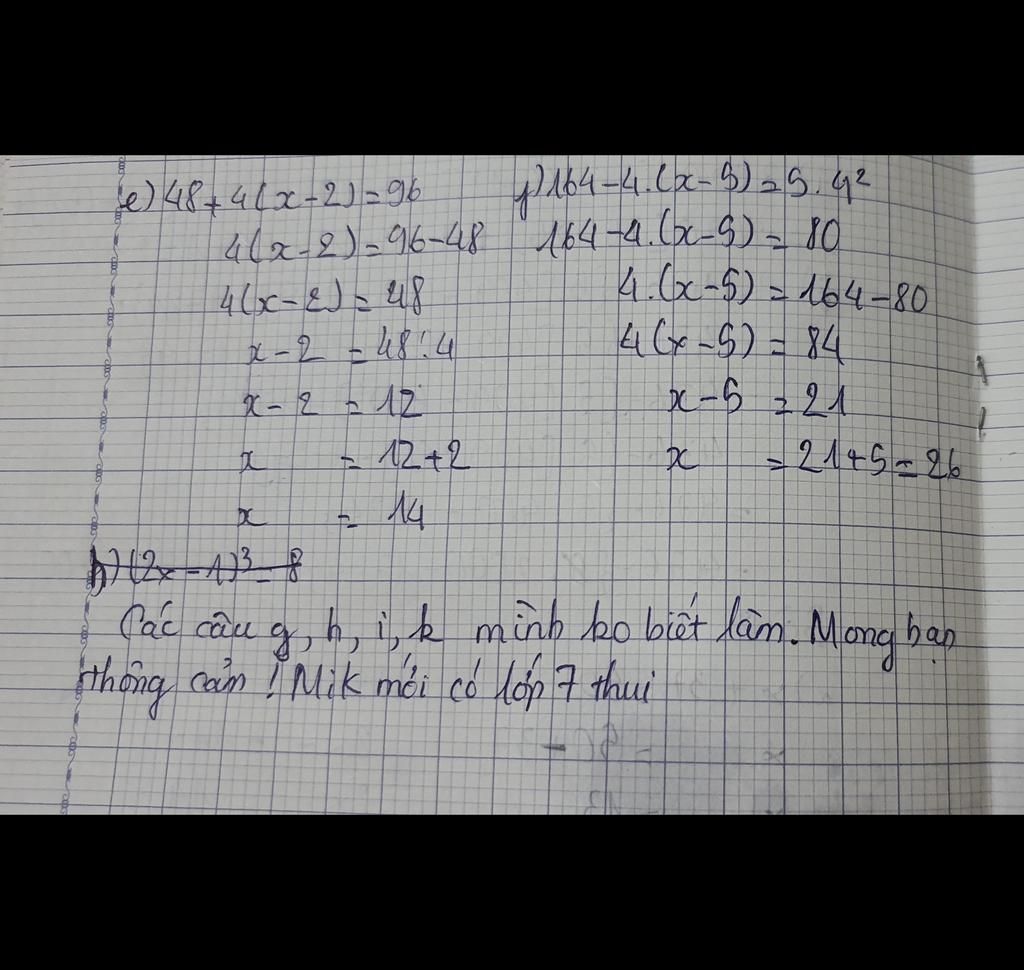 e) 48 + 4(x - 2) = 96
4(x - 2) = 96 - 48
4(x - 2) = 48
x - 2 = 48 : 4
x - 2 = 12
x = 12 + 2
x = 14
f) 164 - 4.(x - 5) = 5.4²
164 - 4.(x - 5) = 80
4.(x - 5) = 164 - 80
4(x - 5) = 84
x - 5 = 21
x = 21 + 5 = 26
h) (2x - 1)³ = 8
Các câu g, h, i, k mình ko biết làm. Mong bạn
thông cảm! Mik mới có lớp 7 thui